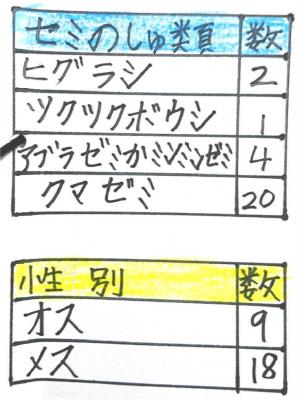 セミのしゅ類 数
ヒグラシ 2
ツクツクボウシ 1
アブラゼミかミンミンゼミ 4
クマゼミ 20
小生 別 数
オス 9
メス 18